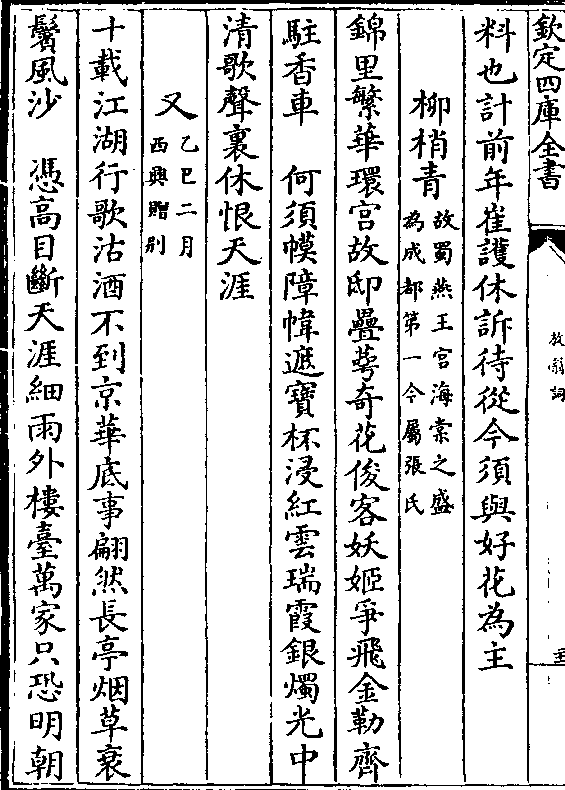 欽定四庫全書
放翁詞
料也計前年崔護休訴待從今須與好花為主
柳梢青
故蜀燕王宮海棠之盛
為成都第一今屬張氏
錦里繁華環宮故邸疊萼奇花俊客妖姬爭飛金勒齊
駐香車　何須幙障幃遮寶杯浸紅雲瑞霞銀燭光中
清歌聲裏休恨天涯
又
乙巳二月
西興贈别
十載江湖行歌沽酒不到京華底事翩然長亭烟草衰
鬢風沙　憑高目斷天涯細雨外樓臺萬家只恐明朝